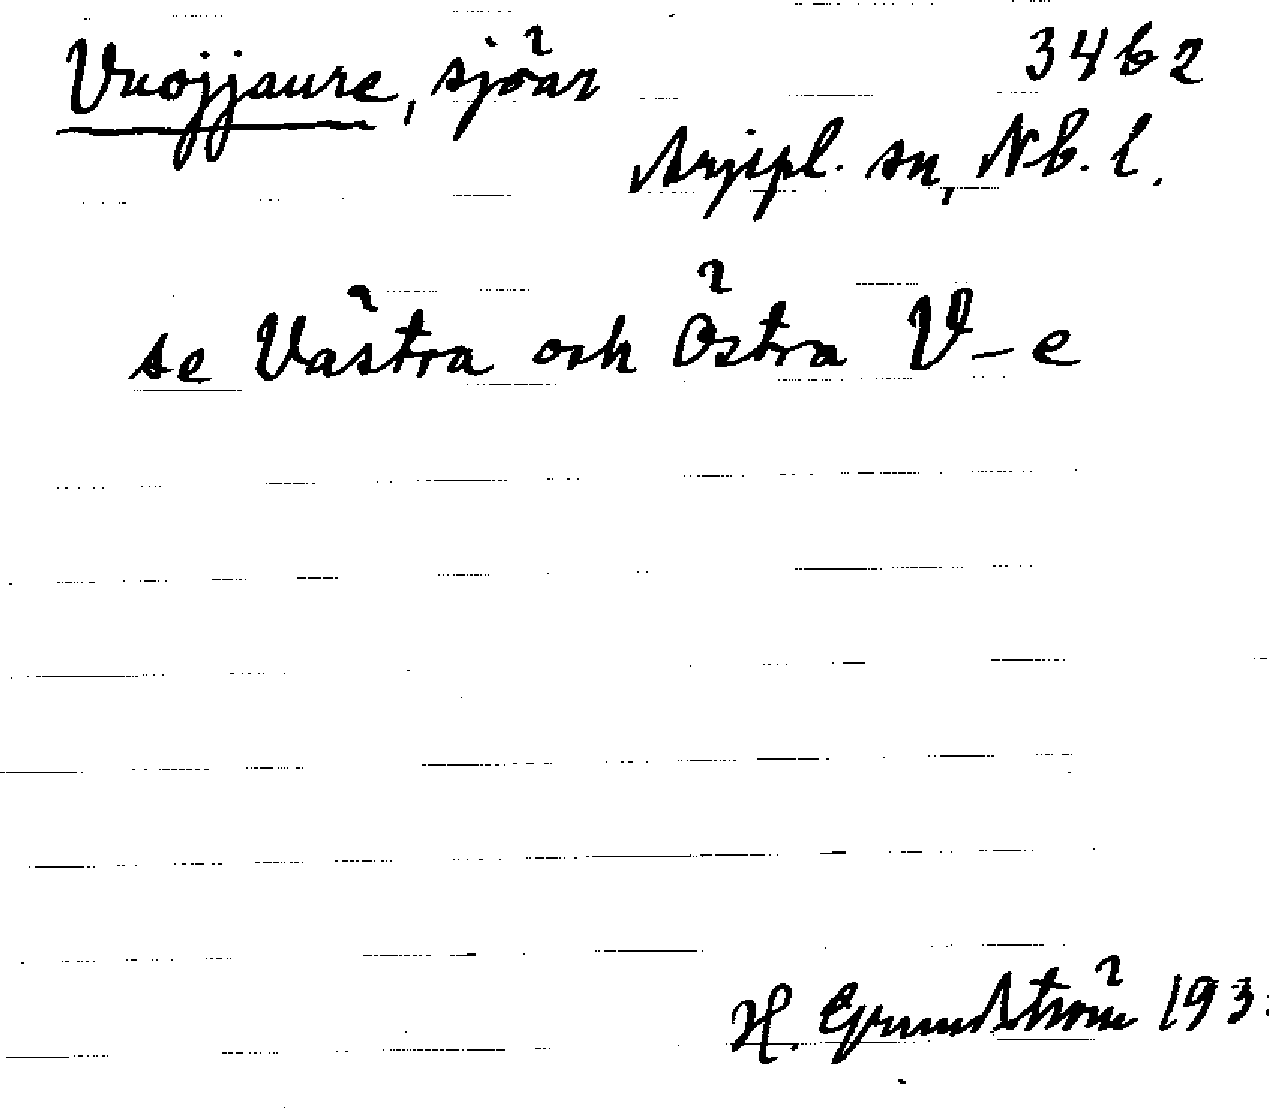 Vuojjaure, sjöar 3462
Arjepl. sn, Nb. l.
se Västra och Östra V–e
H. Grundström 193